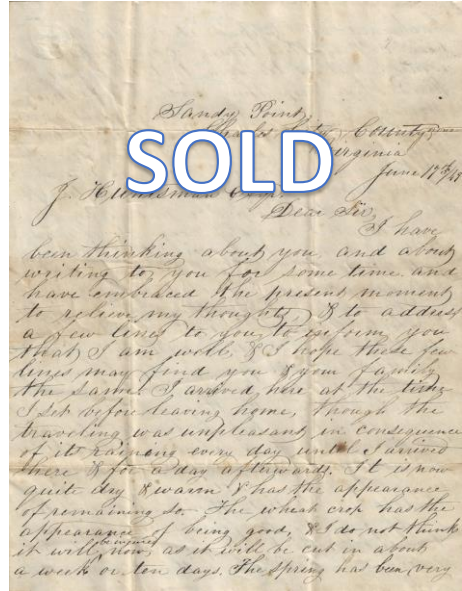 Sandy Point,
County
Virginia
June 17th/49
SOLD
J.
Dear Sir,
I have
been thinking about you, and about
writing to you for some time and
have embraced the present moment
to relieve my thoughts, & to address
a few lines to you, to inform you
that I am well. & I hope these few
lines may find you & your family
the same. I arrived here at the time
I set before leaving home, though the
traveling was unpleasant in consequence
of its raining every day until I arrived
here & for a day afterwards. It is now
quite dry & warm & has the appearance
of remaining so. The wheat crop has the
appearance of being good, & I do not think
it will be injured now, as it will be cut in about
a week or ten days. The spring has been very